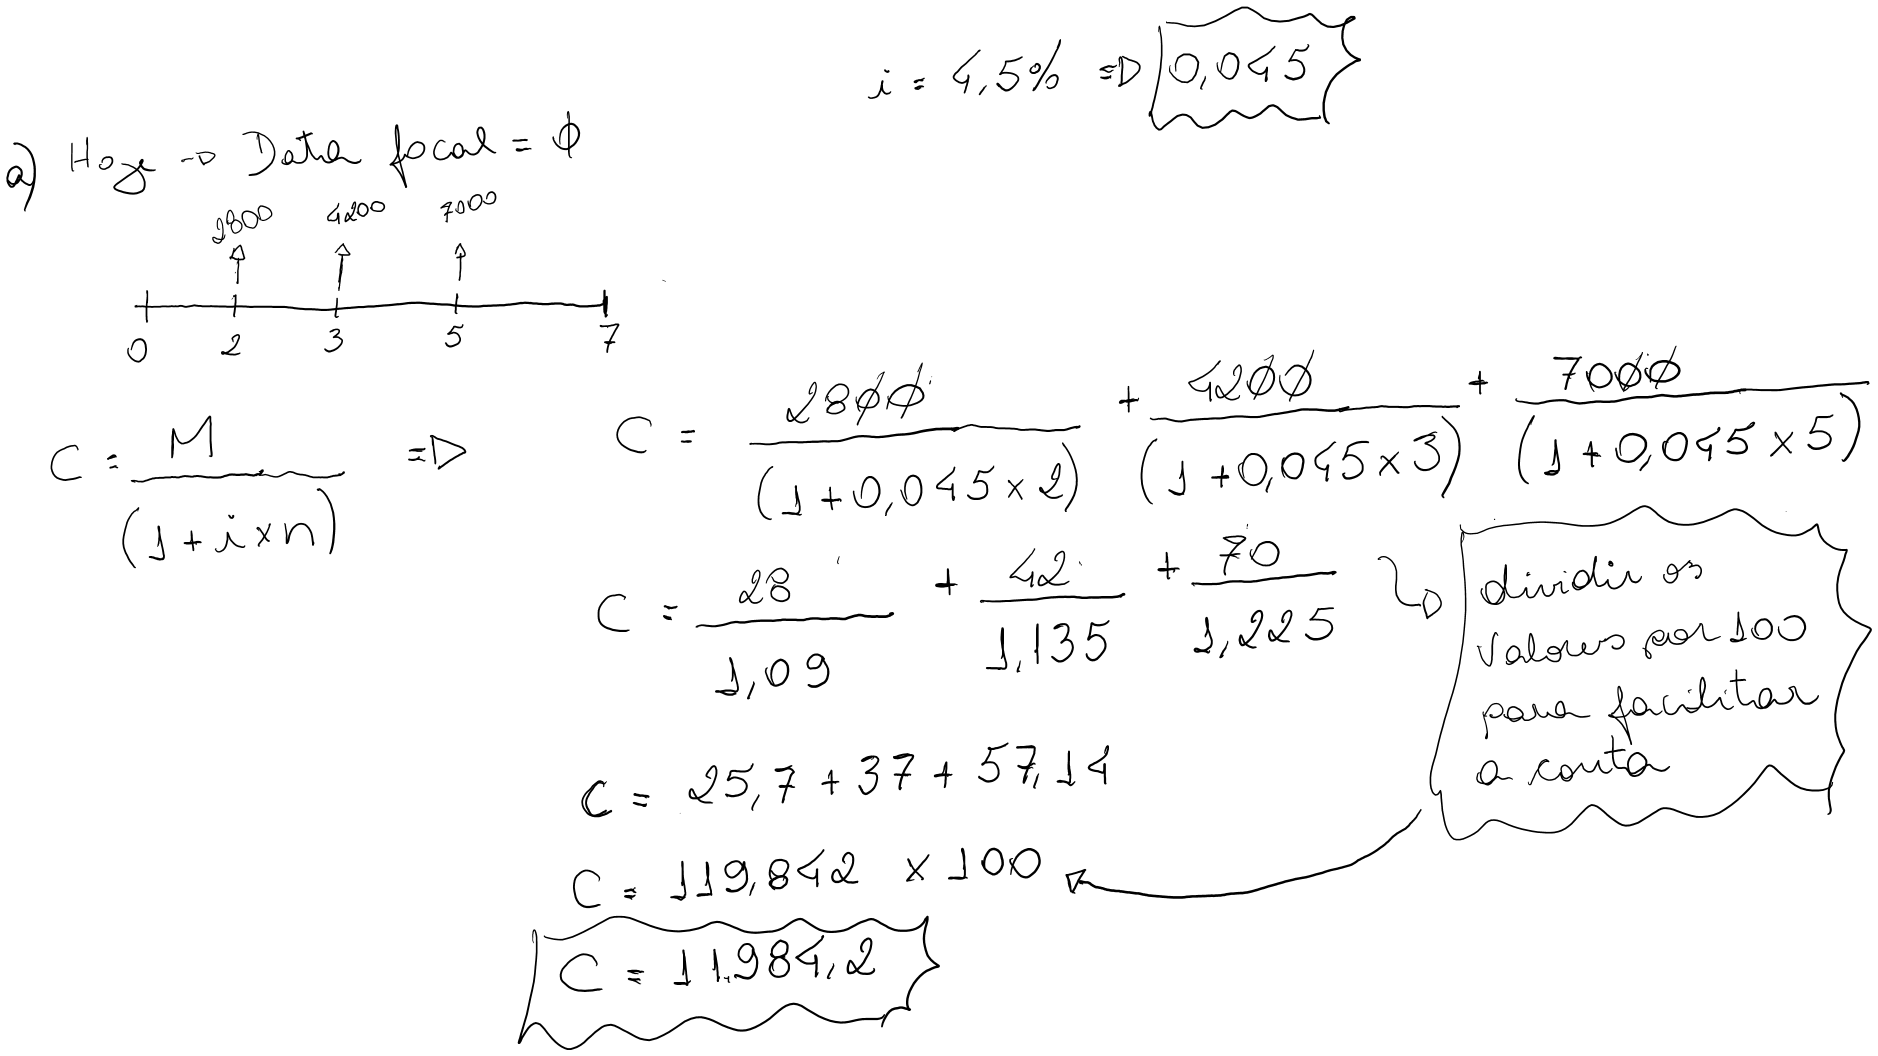 i = 4,5% => 0,045
a) Hoje -> Data focal = ϕ
2800 4200 7000
0 2 3 5 7
C = M / (1 + i x n) =>
C = 2800 / (1 + 0,045 x 2) + 4200 / (1 + 0,045 x 3) + 7000 / (1 + 0,045 x 5)
C = 28 / 1,09 + 42 / 1,135 + 70 / 1,225
dividir os
valores por 100
para facilitar
a conta
C = 25,7 + 37 + 57,14
C = 119,842 x 100
C = 11.984,2